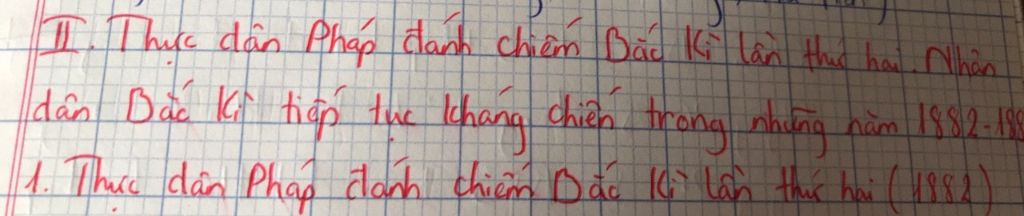 II. Thực dân Pháp đánh chiếm Bắc Kì lần thứ hai. Nhân
dân Bắc Kì tiếp tục kháng chiến trong những năm 1882-188
1. Thực dân Pháp đánh chiếm Bắc Kì lần thứ hai (1882)